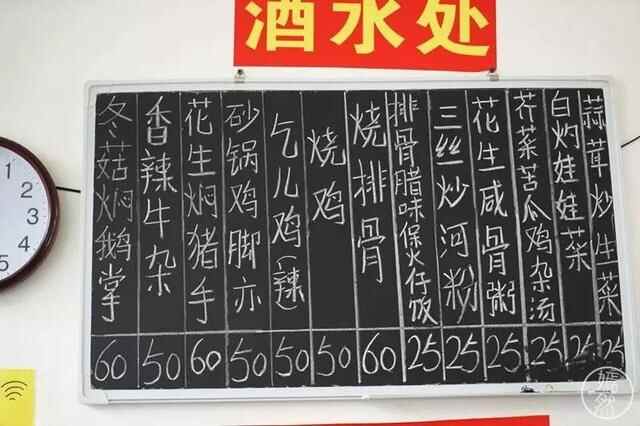 酒水处
冬菇焖鹅掌
60
香辣牛杂
50
花生焖猪手
60
砂锅鸡脚亦
50
乞儿鸡(辣)
50
烧鸡
50
烧排骨
60
排骨腊味煲仔饭
25
三丝炒河粉
25
花生咸骨粥
25
芥菜苦瓜鸡杂汤
25
白灼娃娃菜
25
蒜茸炒生菜
25
1
2
3
4
5